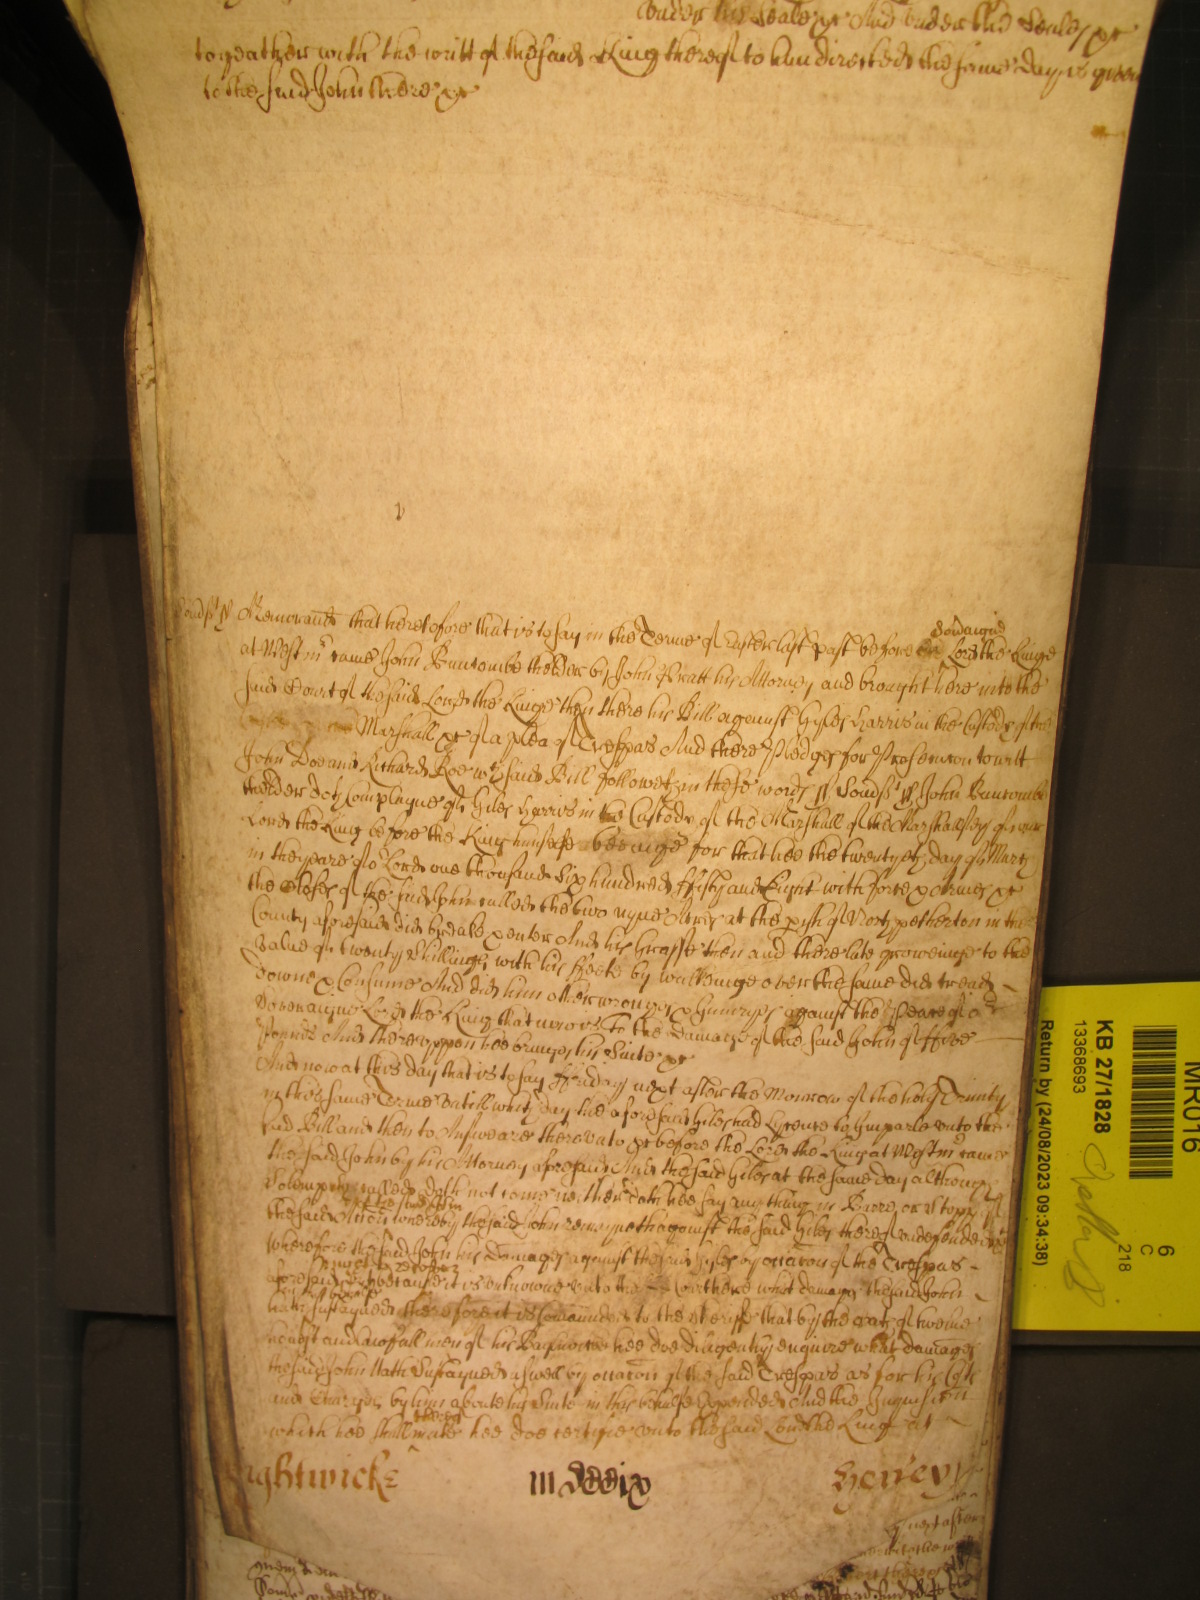 under his Seale &c And under the Seales &c
togeather with the writt of the said King thereof to him directed the same day is given
to the said John there &c
Memorand that heretofore that is to say in the Terme of Easter last past before
Soveraigne
Lord the Kinge
at Westmr came John Buncombe thelder by John Pratt his Attorney and brought here into the
said Court of the said Lord the Kinge then there his Bill against Gyles Harris in the Custody of the
Marshall &c of a plea of Trespas And there Pledges for Prosecucon to witt
John Doe and Richard Roe wch said Bill followeth in these words ss John Buncombe
thelder doth Complayne of Giles Harris in the Custody of the Marshall of the Marshallsey of our
Lord the King before the King himselfe beeinge for that hee the twentyeth day of March
in the yeare of or Lord one thousand Six hundred ffifty and Eight with force & armes &c
the Closes of the said John called the two nyne Acres at the pish of North petherton in the
County aforesaid did breake & enter And his Grasse then and there late groweinge to the
value of twenty Shillings with his ffeete by walkinge over the same did tread
downe & Consume And did him other wronges & Iniuryes against the Peace of or
Soveraigne Lord the King that now is To the Damage of the said John of ffive
Pounds And thereuppon hee brings his Suite &c
And now at this day that is to say ffriday next after the Morrow of the holy Trinity
in this same Terme untill which day the aforesaid Giles had Lycence to Imparle unto the
said Bill and then to Answeare thereunto &c before the Lord the King at Westmr came
the said John by his Attorney aforesaid And the said Giles at the same day although
Solempnly called doth not come nether doth hee say any thing in Barre or
the said Accon whereby the said John remayneth against the said Giles thereof undefended
wherefore the said John his Damages against the said Gyles by occacon of the Trespas
ought to recover
aforesaid because it is unknowne unto the Court here what damages the said John
hath Sustayned therefore it is Comaunded to the Sheriffe that by the oath of twelve
honest and lawfull men of his Baylywicke hee doe diligently enquire what damages
the said John Hath Sustayned aswell by occacon of the said Trespas as for his Costs
and Charges by him about his Suite in this behalfe expended And the Inquisicon
thereof
which hee shall make hee doe certifie unto the said Lord the King at
IIIDCCCix
Henley
MR016
KB 27/1828
13368693
Return by (24/08/2023 09:34:38)
6
C
218